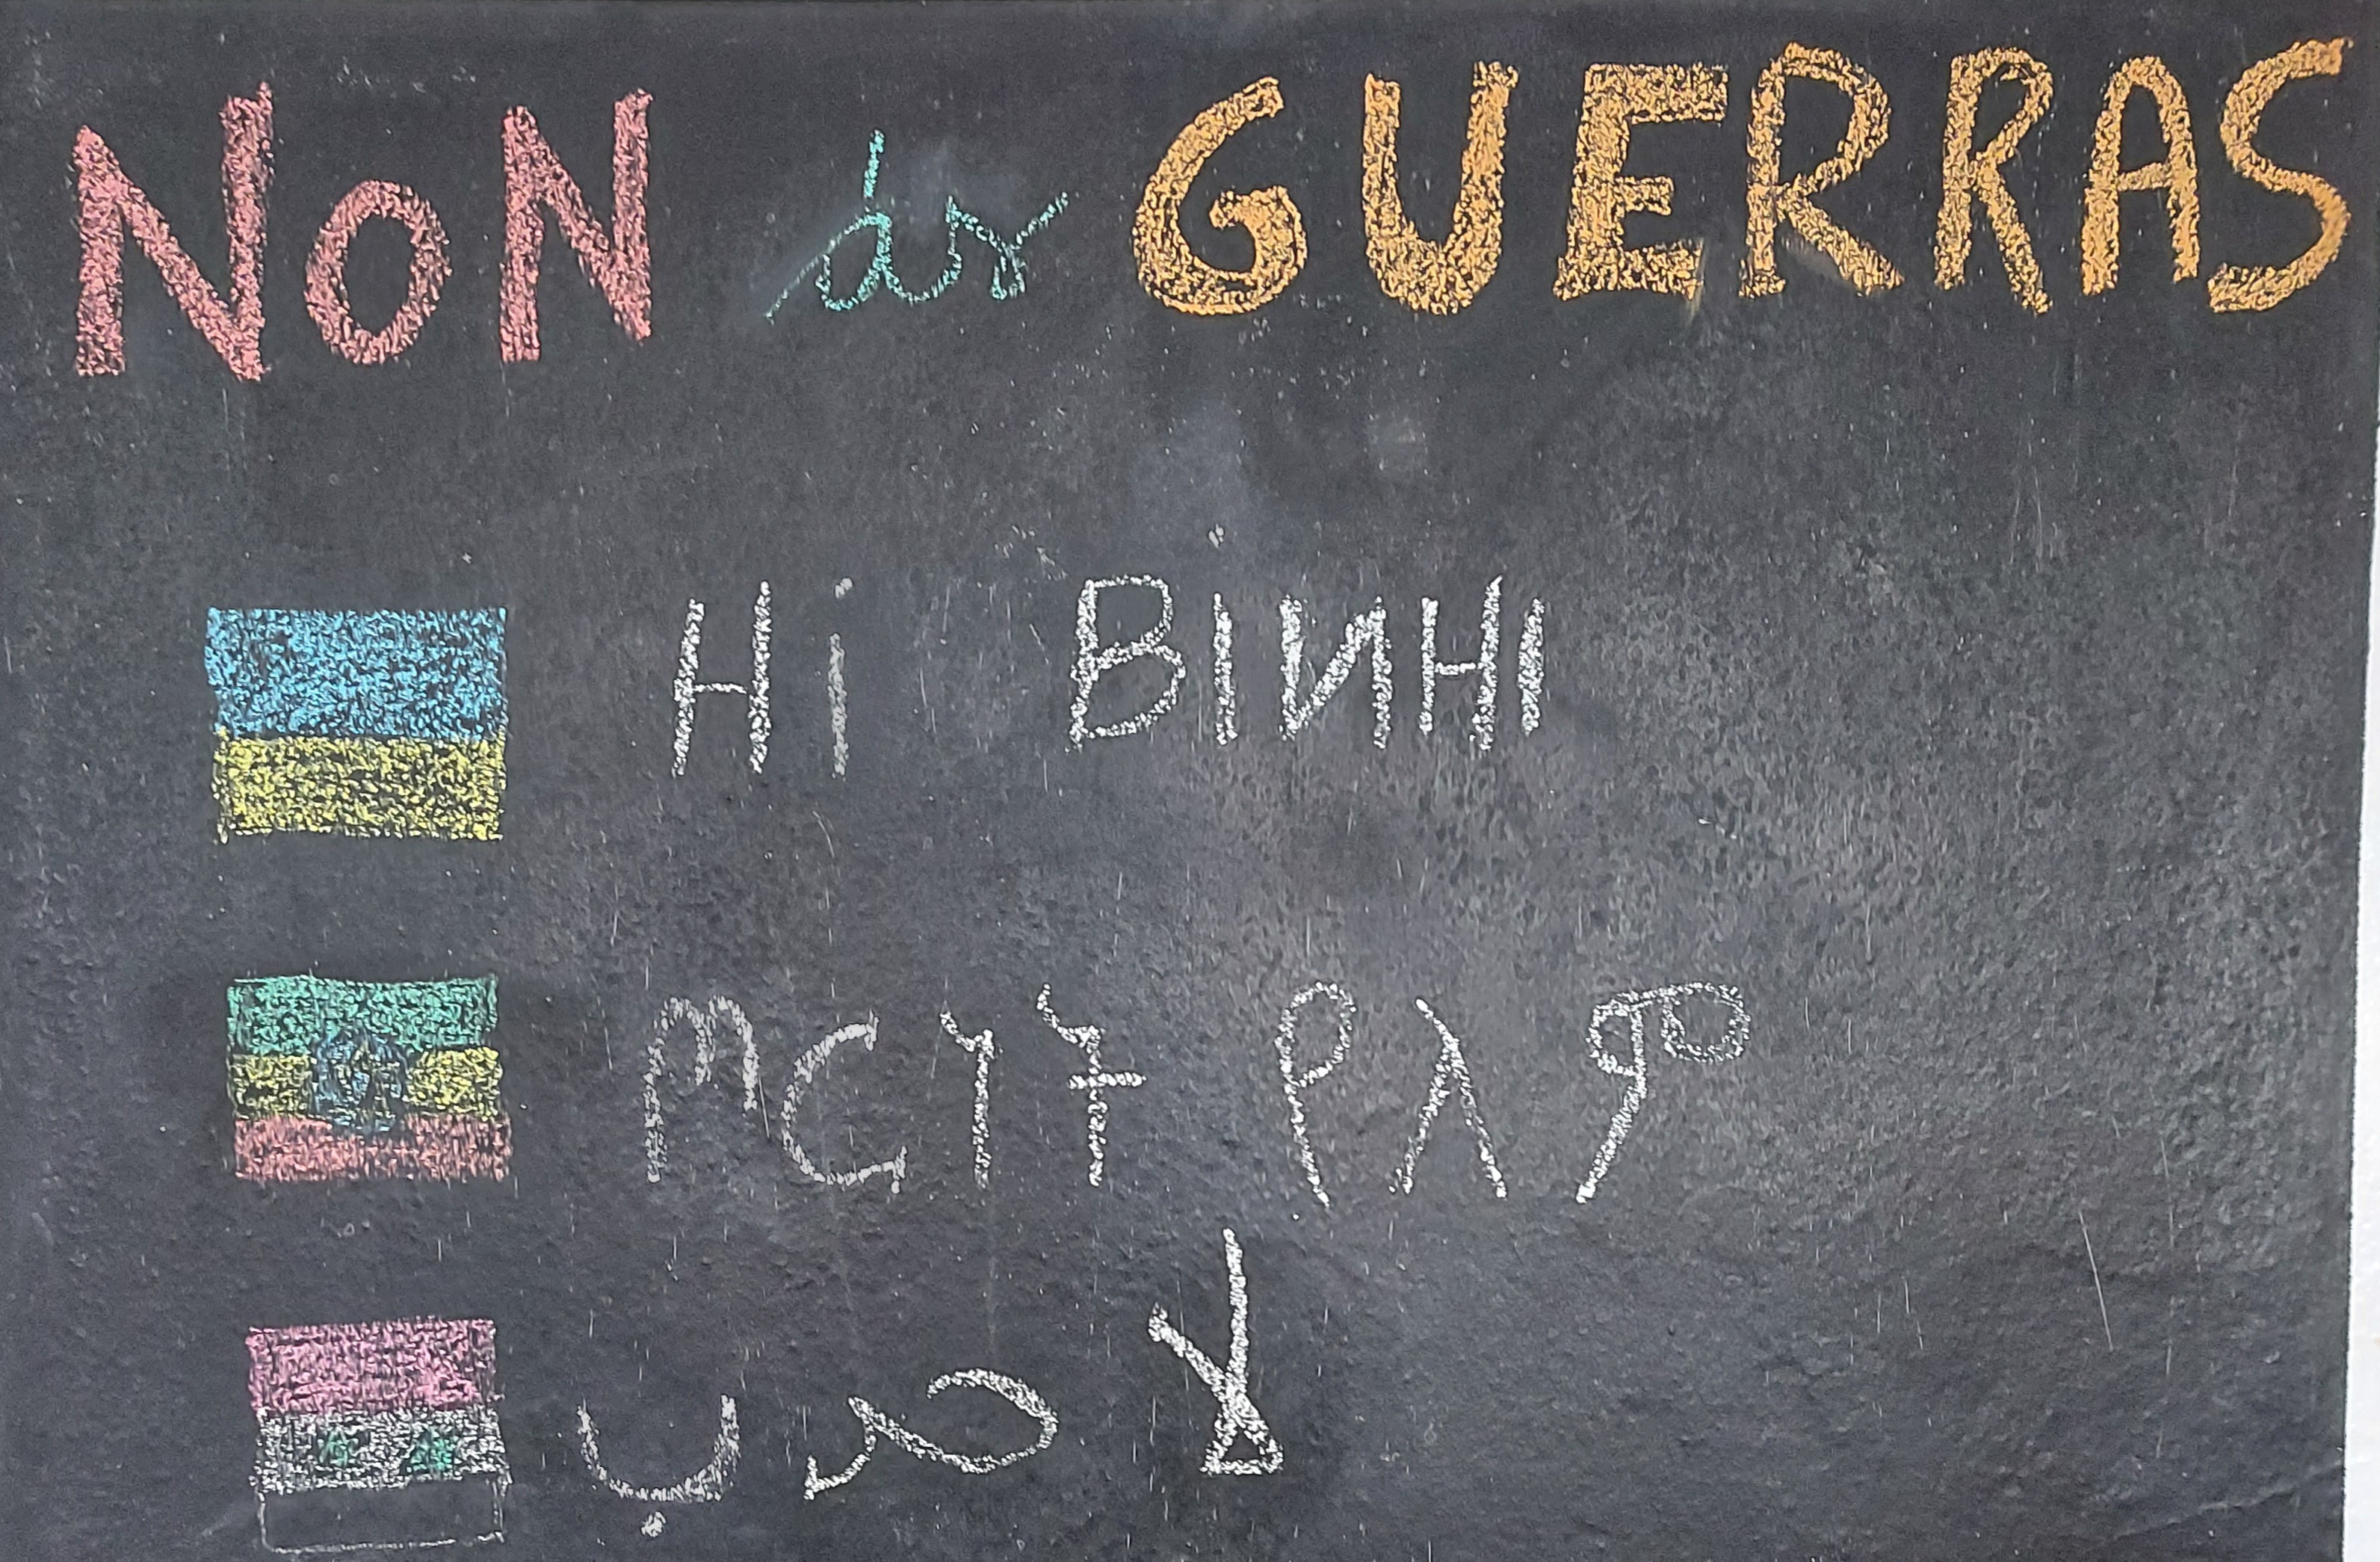 NoN ás GUERRAS
Ні ВіИНІ
ጦርነት የለም
لا حرب